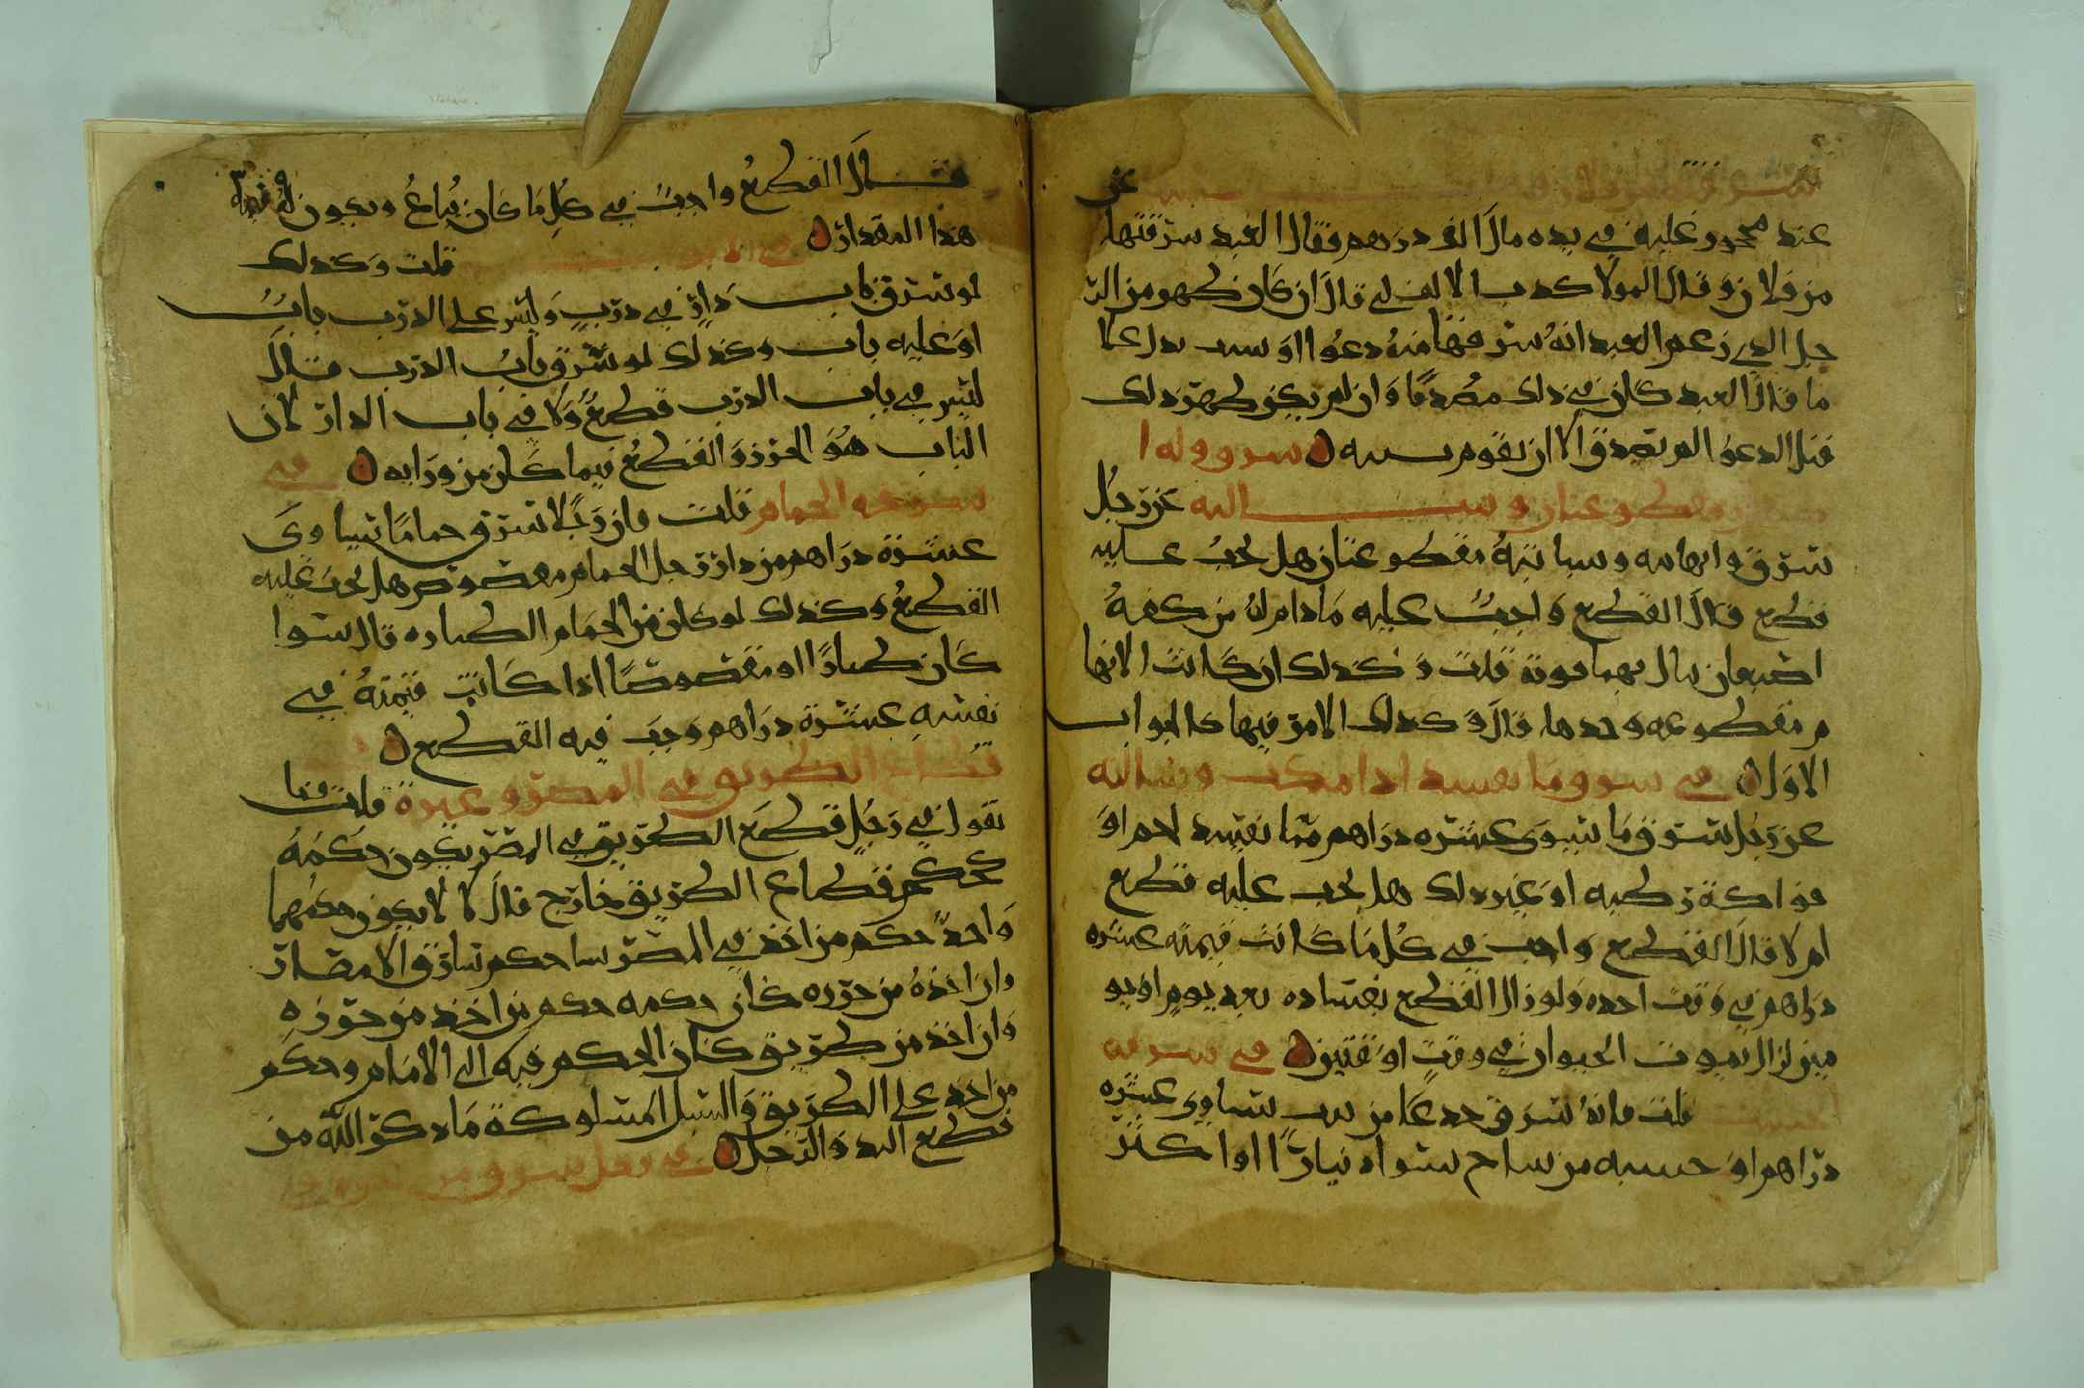 عن
عند محجور عليه في يده مال الف درهم فقال العبد سرقتها
من فلان وقال المولا كذب الالف لي قال ان كان ظهر من الر
جل الذي زعم العبد انه سرقها منه دعوا او سبب يدل على
ما قال العبد كان في ذلك مصدقا وان لم يكن ظهر ذلك
قبل الدعوا لم يصدق الا ان تقوم بينه سرق وله ا
مقطوعتان وسالته عن رجل
سرق وابهامه وسبابته مقطوعتان هل يجب عليه
قطع قال القطع واجب عليه ما دام له من كفه
اصبعان قلت وكذلك ان كانت الابها
م مقطوعه وحدها قال وكذلك الامر فيها كالجواب
الاول في سرق ما يفسد اذا مكث وسالته
عن رجل سرق ما يسوى عشره دراهم مما يفسد لحم او
فواكة رطبه او غير ذلك هل يجب عليه قطع
ام لا قال القطع واجب في كل ما كانت قيمته عشره
دراهم في وقت اخذه ولو زال القطع بفساده بعد يوم او يو
مين لزال بموت الحيوان في وقت او وقتين في سرقه
الخشب قلت فانه سرق جذعا من بيت يساوي عشره
دراهم او خشبه من ساج سوا دينارا او اكثر
فقال القطع واجب في كل ما كان يباع ويكون له قيمة
هذا المقدار في الابواب قلت وكذلك
لو سرق باب دار في درب وليس على الدرب باب
او عليه باب وكذلك لو سرق باب الدرب قال
ليس في باب الدرب قطع ولا في باب الدار لان
الباب هو الحرز والقطع فيما كان من ورايه في
سرقه الحمام قلت فان رجلا سرق حماما تسوى
عشرة دراهم من دار رجل الحمام مقصوص هل يجب عليه
القطع وكذلك لو كان من الحمام الطياره قال سوا
كان طيارا او مقصوصا اذا كانت قيمته في
نفسه عشرة دراهم وجب فيه القطع
قطاع الطريق في المصر وغيره قلت فما
تقول في رجل قطع الطريق في المصر يكون حكمه
كحكم قطاع الطريق خارج قال لا لا يكون حكمهما
واحد حكم من اخذ في المصر حكم سارق الامصار
وان اخذه من حرزه كان حكمه حكم من اخذ من حرزه
وان اخذ من طريق كان الحكم فيه الى الامام وحكم
من اخذ على الطريق والسبل المسلوكة ما ذكر الله من
قطع اليد والرجل في رجل سرق من